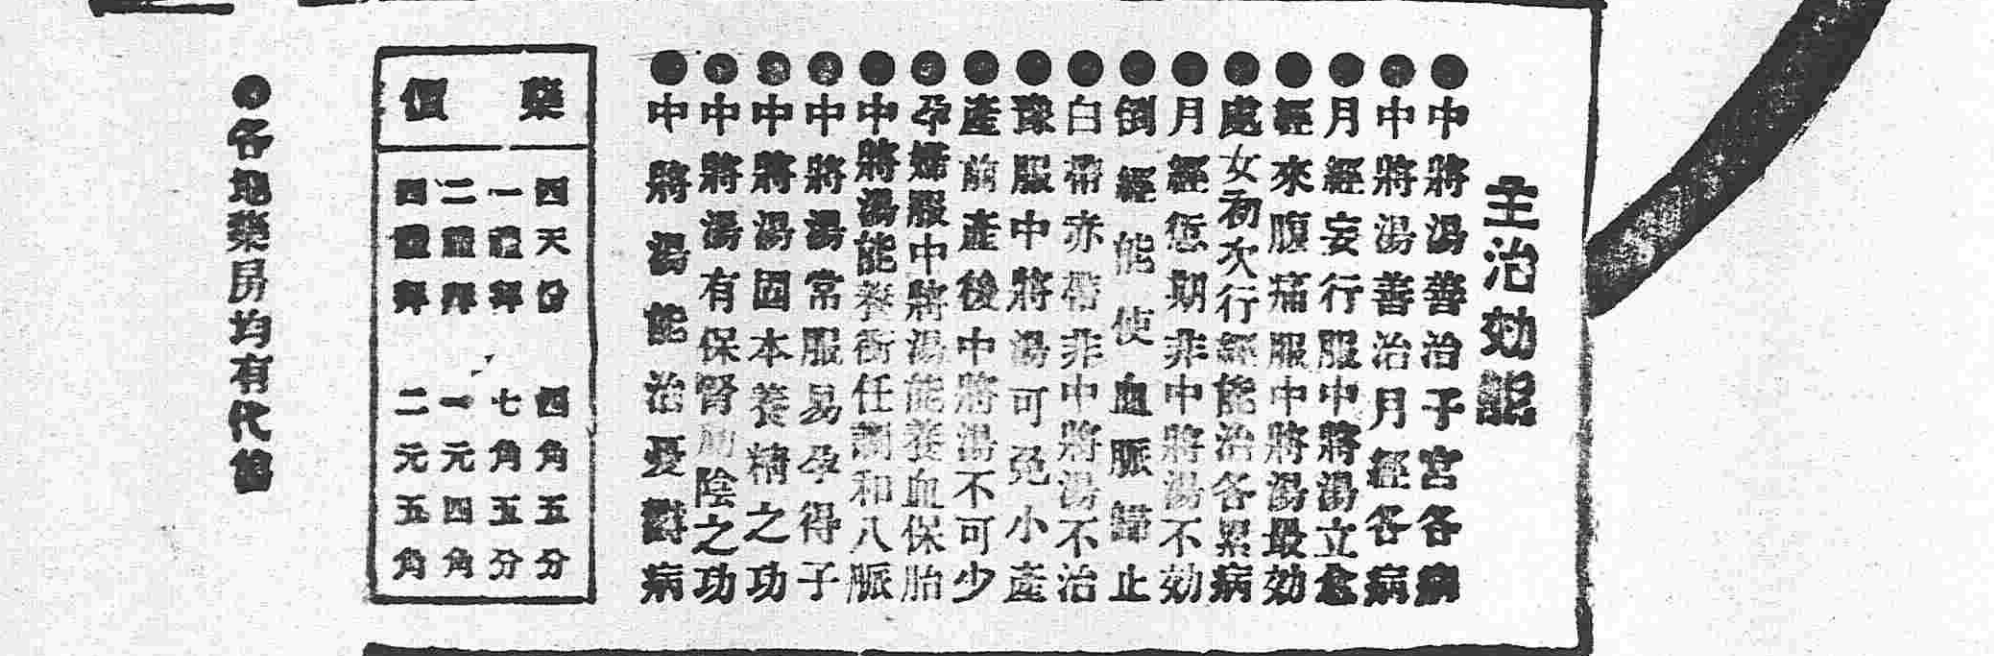 主治効能
●中將湯善治子宮各病
●中將湯善治月經各病
●月經妄行服中將湯立愈
●經來腹痛服中將湯最効
●處女初次行經能治各累病
●月經愆期非中將湯不効
●倒經能使血脈歸止
●白帶赤帶非中將湯不治
●豫服中將湯可免小產
●產前產後中將湯不可少
●孕婦服中將湯能養血保胎
●中將湯能養衝任調和八脈
●中將湯常服易孕得子
●中將湯固本養精之功
●中將湯有保腎助陰之功
●中將湯能治憂鬱病
藥價
四天份 四角五分
一禮拜 七角五分
二禮拜 一元四角
四禮拜 二元五角
●各地藥房均有代售